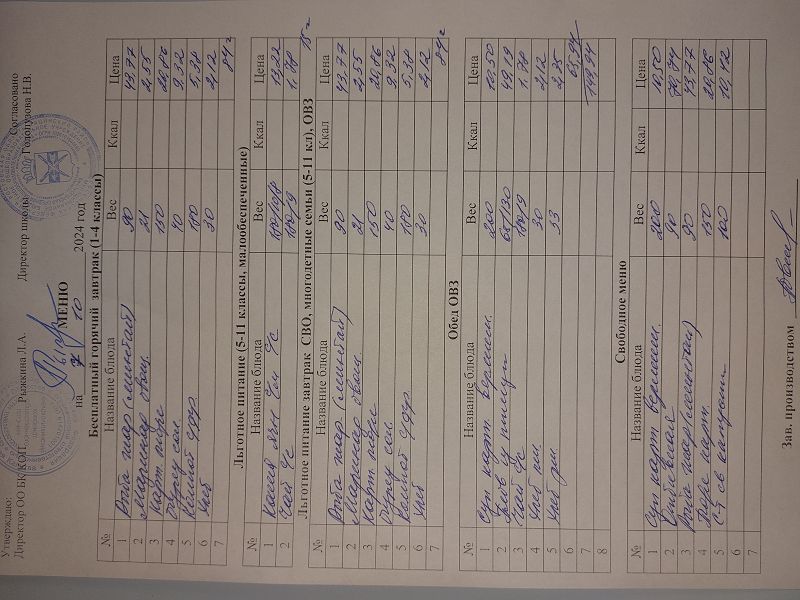 Утверждаю:
Согласовано
Директор ОО БК КОП Рыжкина Л.А. Директор школы Голопузова Н.В.
МЕНЮ
на 7 10 2024 год
Бесплатный горячий завтрак (1-4 классы)
№ Название блюда Вес Ккал Цена
1 Рыба жар (минтай) 90 43,77
2 Маринад овощ. 21 2,55
3 Карт пюре 150 20,86
4 Огурец сол 40 9,32
5 180 5,38
6 Хлеб 30 2,12
7 84
Льготное питание (5-11 классы, малообеспеченные)
№ Название блюда Вес Ккал Цена
1 Каша 13,22
2 Чай 180/9 1,78
15
Льготное питание завтрак СВО, многодетные семьи (5-11 кл), ОВЗ
№ Название блюда Вес Ккал Цена
1 Рыба жар (минтай) 90 43,77
2 Маринад овощ. 21 2,55
3 Карт пюре 150 20,86
4 Огурец сол 40 9,32
5 180 5,38
6 Хлеб 30 2,12
7 84
Обед ОВЗ
№ Название блюда Вес Ккал Цена
1 Суп карт вермиш. 200 10,50
2 Плов птицы 49,19
3 Чай 180/9 1,78
4 Хлеб пш. 30 2,12
5 Хлеб 33 2,35
6 65,94
7
8
Свободное меню
№ Название блюда Вес Ккал Цена
1 Суп карт вермиш. 200
2 90
3 Рыба жар (минтай) 90 43,77
4 Пюре карт. 150 20,86
5 С-т св капусты 100 10,12
6
7
Зав. производством